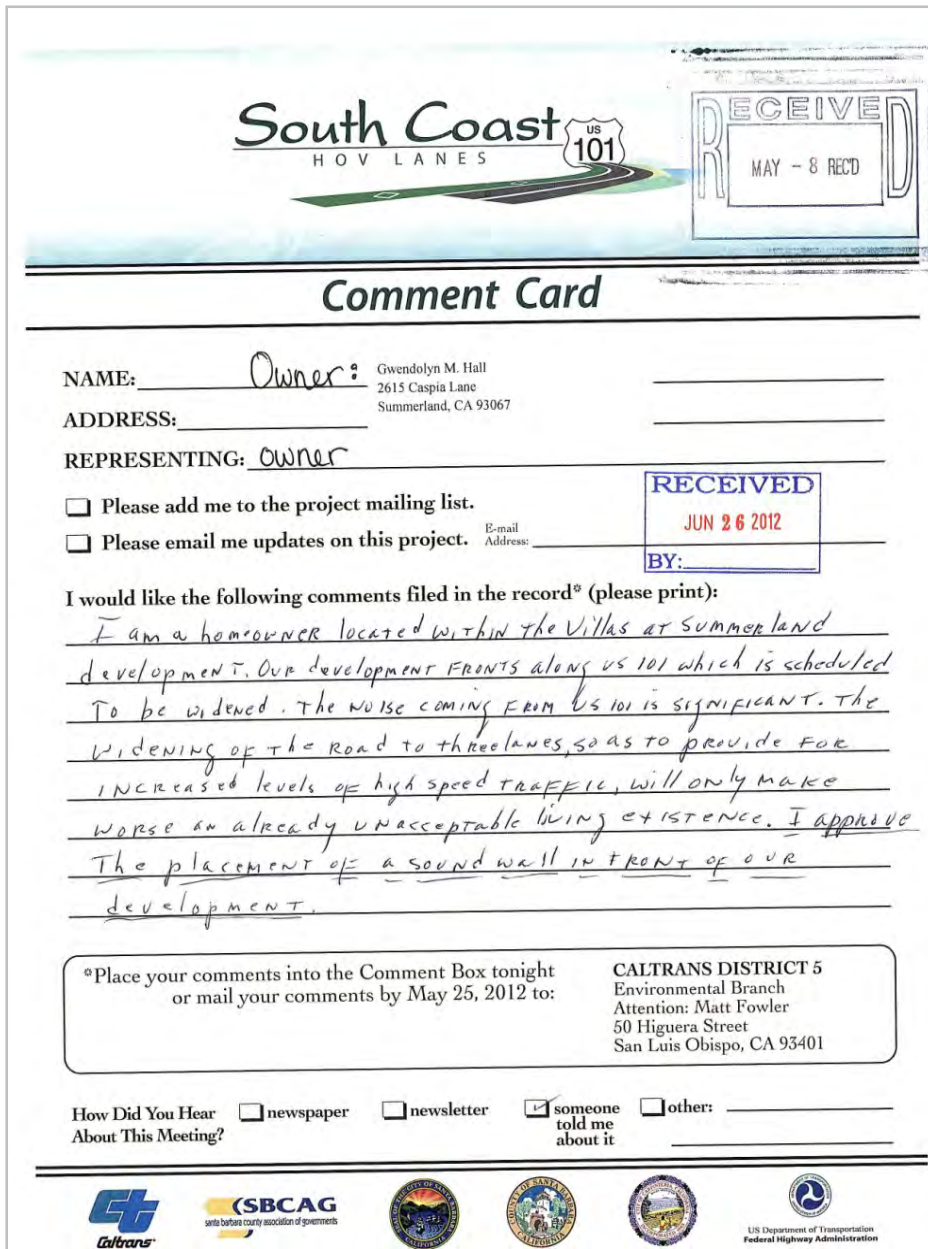 South Coast
HOV LANES
US
101
RECEIVED
MAY - 8 REC'D
Comment Card
NAME: Owner: Gwendolyn M. Hall
2615 Caspia Lane
Summerland, CA 93067
ADDRESS:
REPRESENTING: owner
Please add me to the project mailing list.
Please email me updates on this project. E-mail Address:
RECEIVED
JUN 26 2012
BY:
I would like the following comments filed in the record* (please print):
I am a homeowner located within the Villas at Summerland
development. Our development fronts along US 101 which is scheduled
to be widened. The noise coming from US 101 is significant. The
widening of the road to three lanes, so as to provide for
increased levels of high speed traffic, will only make
worse an already unacceptable living existence. I approve
the placement of a sound wall in front of our
development.
*Place your comments into the Comment Box tonight
or mail your comments by May 25, 2012 to:
CALTRANS DISTRICT 5
Environmental Branch
Attention: Matt Fowler
50 Higuera Street
San Luis Obispo, CA 93401
How Did You Hear
About This Meeting?
newspaper
newsletter
someone
told me
about it
other:
Caltrans
SBCAG
santa barbara county association of governments
US Department of Transportation
Federal Highway Administration